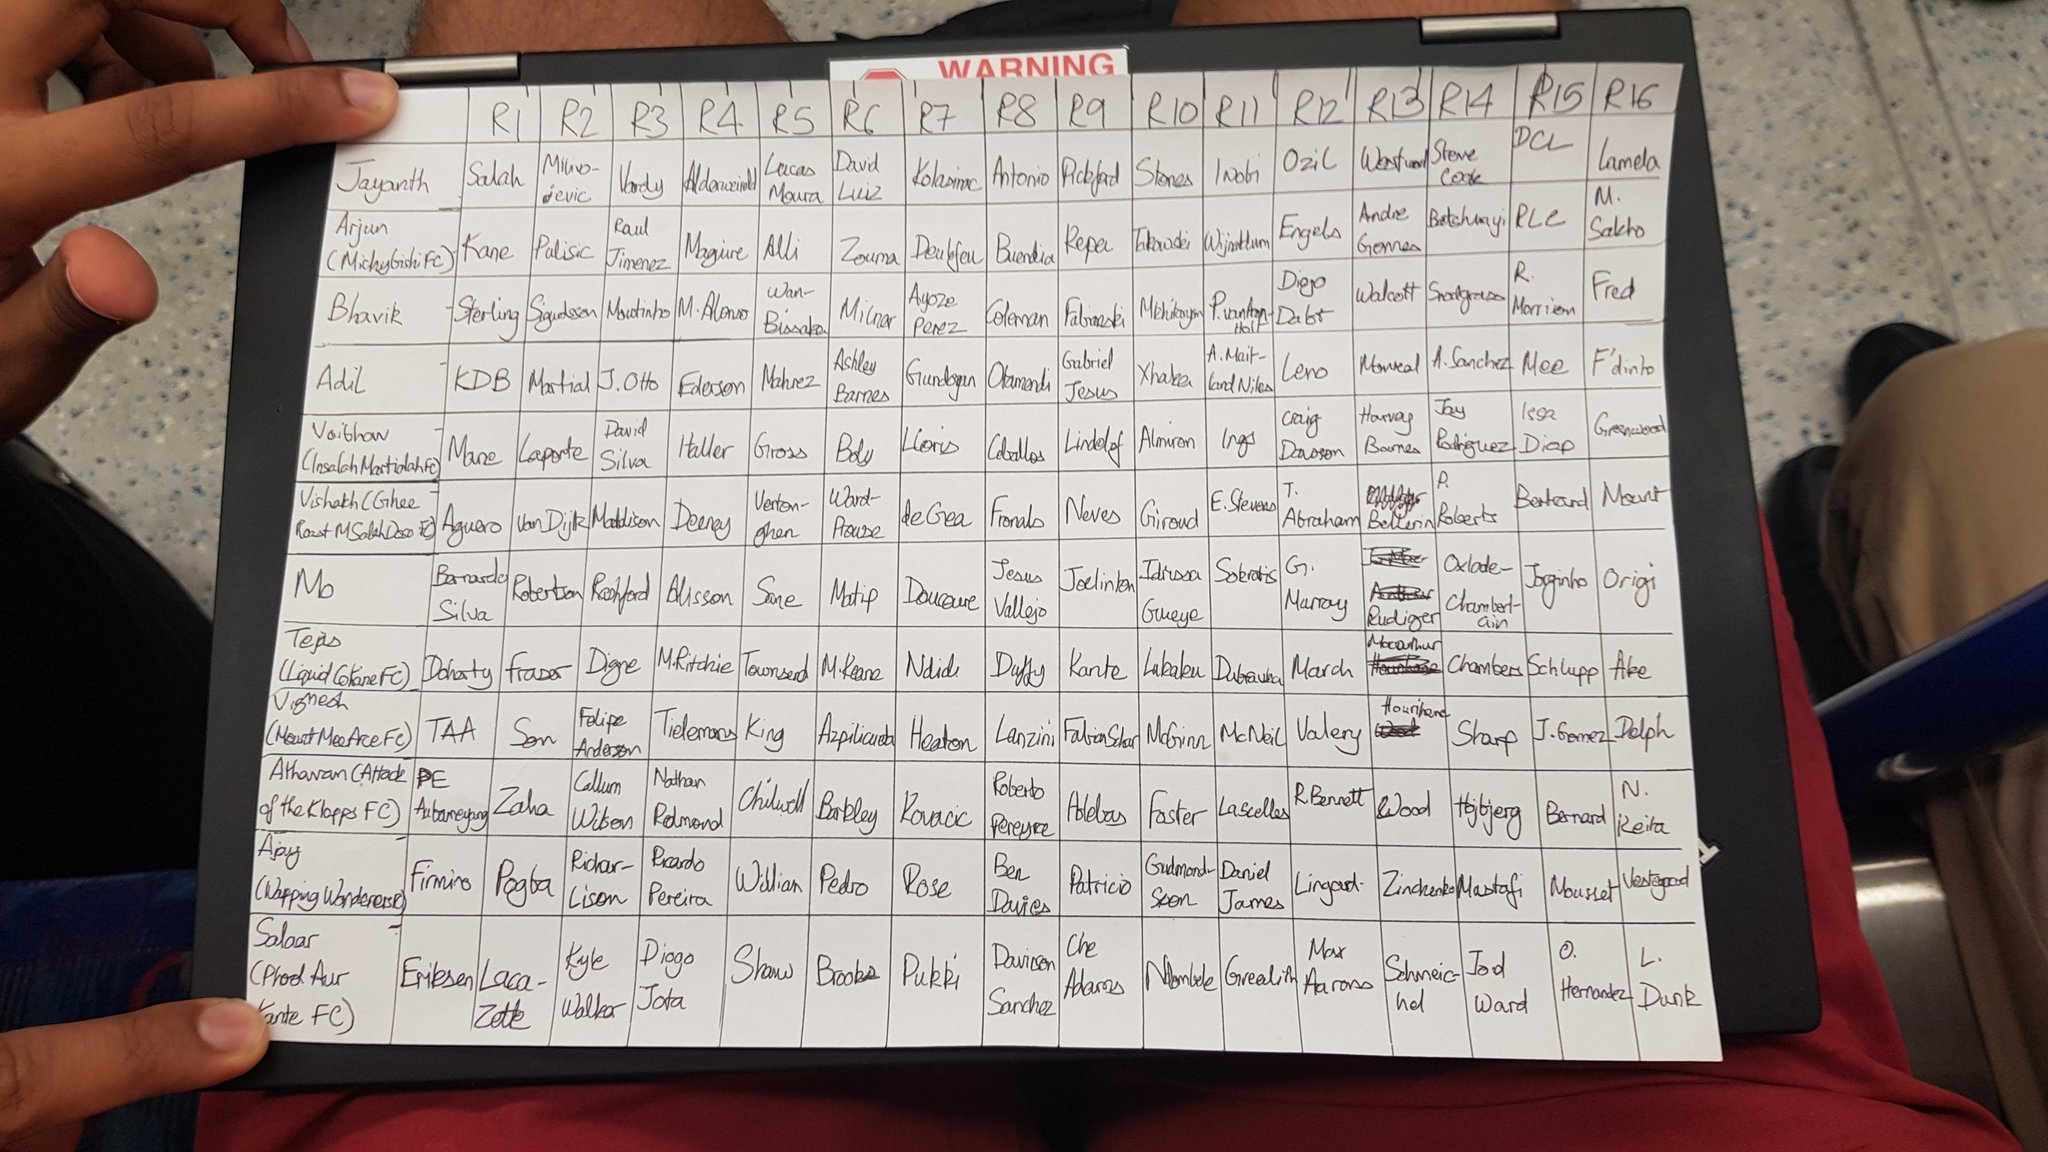 WARNING
R1 R2 R3 R4 R5 R6 R7 R8 R9 R10 R11 R12 R13 R14 R15 R16
Jayanth Salah Milivo-jevic Vardy Alderweireld Lucas Moura David Luiz Kolasinac Antonio Pickford Stones Iwobi Ozil Westwood Steve Cook DCL Lamela
Arjun (MichyGishiFC) Kane Pulisic Raul Jimenez Maguire Alli Zouma Deulofeu Buendia Kepa Tarkowski Wijnaldum Engels Andre Gomes Batshuayi RLC M. Sakho
Bhavik Sterling Sigurdsson Moutinho M. Alonso Wan-Bissaka Milner Ayoze Perez Coleman Fabianski Mkhitaryan P. van Aanholt Diego Walcott Snodgrass R. Morrison Fred
Adil KDB Martial J. Otto Ederson Mahrez Ashley Barnes Gundogan Otamendi Gabriel Jesus Xhaka A. Mait-land Niles Leno Monreal A. Sanchez Mee F'dinho
Vaibhav (Insalah Martialah FC) Mane Laporte David Silva Haller Gross Boly Lloris Ceballos Lindelof Almiron Ings Craig Dawson Harvey Barnes Jay Rodriguez Issa Diop Greenwood
Vishakh (Ghee Roast MSalahDosa FC) Aguero Van Dijk Maddison Deeney Verton-ghen Ward-Prowse de Gea Fornals Neves Giroud E. Stevens T. Abraham Bellerin P. Roberts Bertrand Mount
Mo Bernardo Silva Robertson Rashford Alisson Sane Matip Doucoure Jesus Vallejo Joelinton Idrissa Gueye Sokratis G. Murray Rudiger Oxlade-Chamberl-ain Jorginho Origi
Tejas (Liquid CoKane FC) Doherty Fraser Digne M. Ritchie Townsend M. Keane Ndidi Duffy Kante Lukaku Dubravka March Macarthur Chambers Schlupp Ake
Vignesh (Mount Mee Ake FC) TAA Son Felipe Anderson Tielemans King Azpilicueta Heaton Lanzini Fabian Schar McGinn McNeil Valery Hourihane Sharp J. Gomez Delph
Atharvan (Attack of the Klopps FC) PE Aubameyang Zaha Callum Wilson Nathan Redmond Chilwell Barkley Kovacic Roberto Pereyra Holebas Foster Lascelles R. Bennett Wood Hojbjerg Bernard N. Keita
Ajay (Wapping Wanderers) Firmino Pogba Richar-Lison Ricardo Pereira Willian Pedro Rose Ben Davies Patricio Gudmond-sson Daniel James Lingard Zinchenko Mustafi Mousset Vestgaard
Salaar (Phod Aur Kante FC) Eriksen Laca-zette Kyle Walker Diogo Jota Shaw Brooks Pukki Davinson Sanchez Che Adams Ndombele Grealish Max Aarons Schmeic-hel Joel Ward O. Hernandez L. Dunk